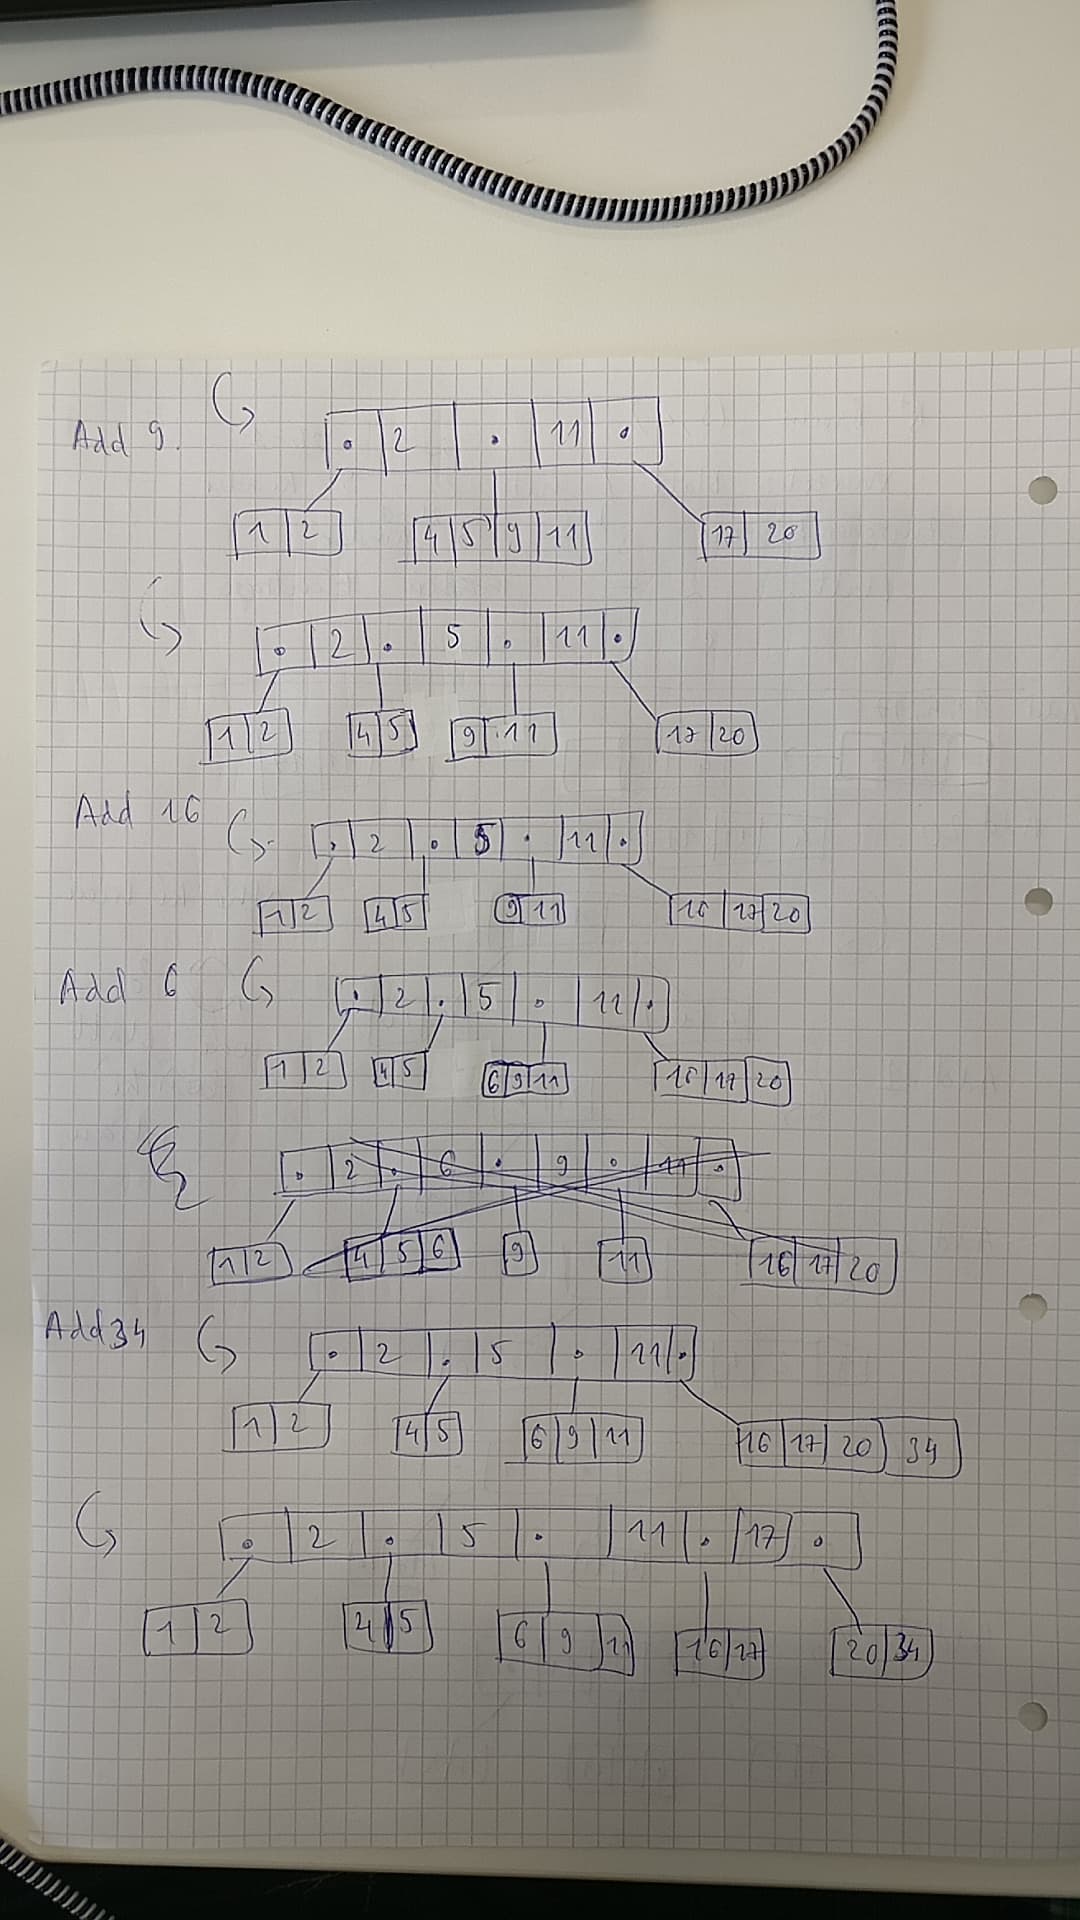 Add 9.
. 2 . 11 .
1 2 4 5 9 11 17 20
. 2 . 5 . 11 .
1 2 4 5 9 11 17 20
Add 16
. 2 . 5 . 11 .
1 2 4 5 9 11 16 17 20
Add 6
. 2 . 5 . 11 .
1 2 4 5 6 9 11 16 17 20
. 2 . 6 . 9 . 11 .
1 2 4 5 6 9 11 16 17 20
Add 34
. 2 . 5 . 11 .
1 2 4 5 6 9 11 16 17 20 34
. 2 . 5 . 11 . 17 .
1 2 4 5 6 9 11 16 17 20 34